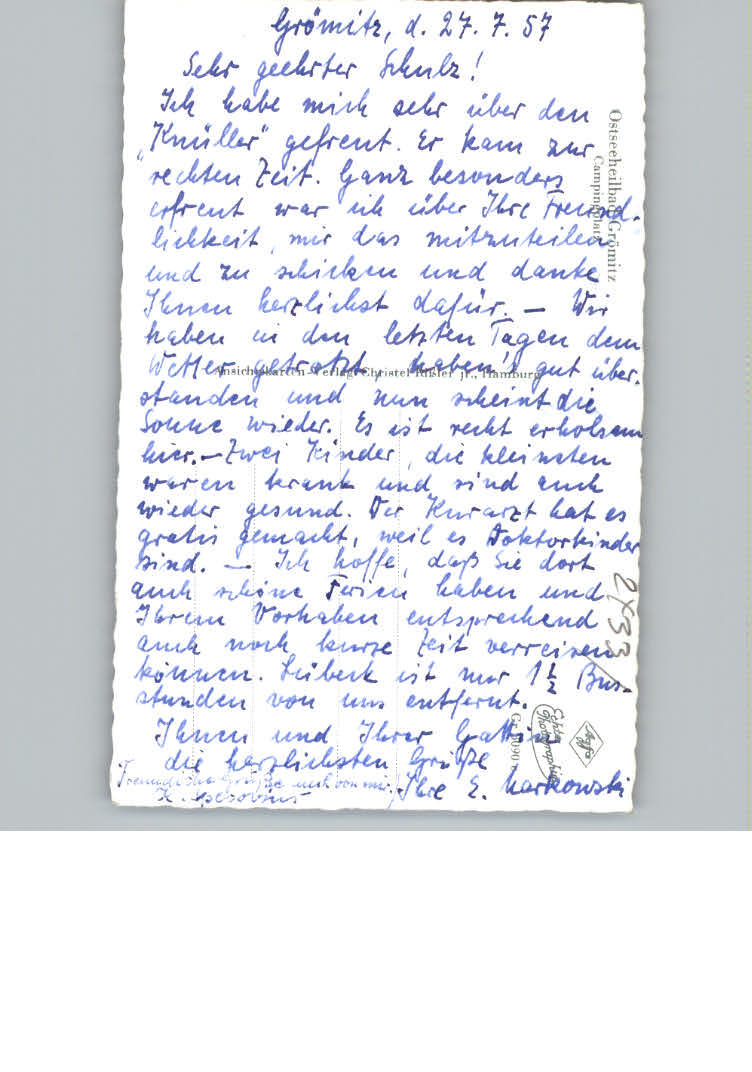 Grömitz, d. 27. 7. 57
Sehr geehrter Schulz!
Ich habe mich sehr über den
„Knüller" gefreut. Er kam zur
rechten Zeit. Ganz besonders
erfreut war ich über Ihre Freund-
lichkeit, mir das mitzuteilen
und zu schicken und danke
Ihnen herzlichst dafür. — Wir
haben in den letzten Tagen dem
Wetter getrotzt, haben's gut über-
standen und nun scheint die
Sonne wieder. Es ist recht erholsam
hier. — Zwei Kinder, die kleinsten
waren krank und sind auch
wieder gesund. Der Kurarzt hat es
gratis gemacht, weil es Doktorkinder
sind. — Ich hoffe, daß Sie dort
auch schöne Ferien haben und
Ihrem Vorhaben entsprechend
auch noch kurze Zeit verreisen
können. Lübeck ist nur 1 1/2 Bus-
stunden von uns entfernt.
Ihnen und Ihrer Gattin
die herzlichsten Grüße
Ihre E. Markowski
Freundliche Grüße auch von mir
Ostseeheilbad Grömitz
Campingplatz
Ansichtskarten-Verlag Christel jr., Hamburg
2X33
Echte
Photographie
Agfa